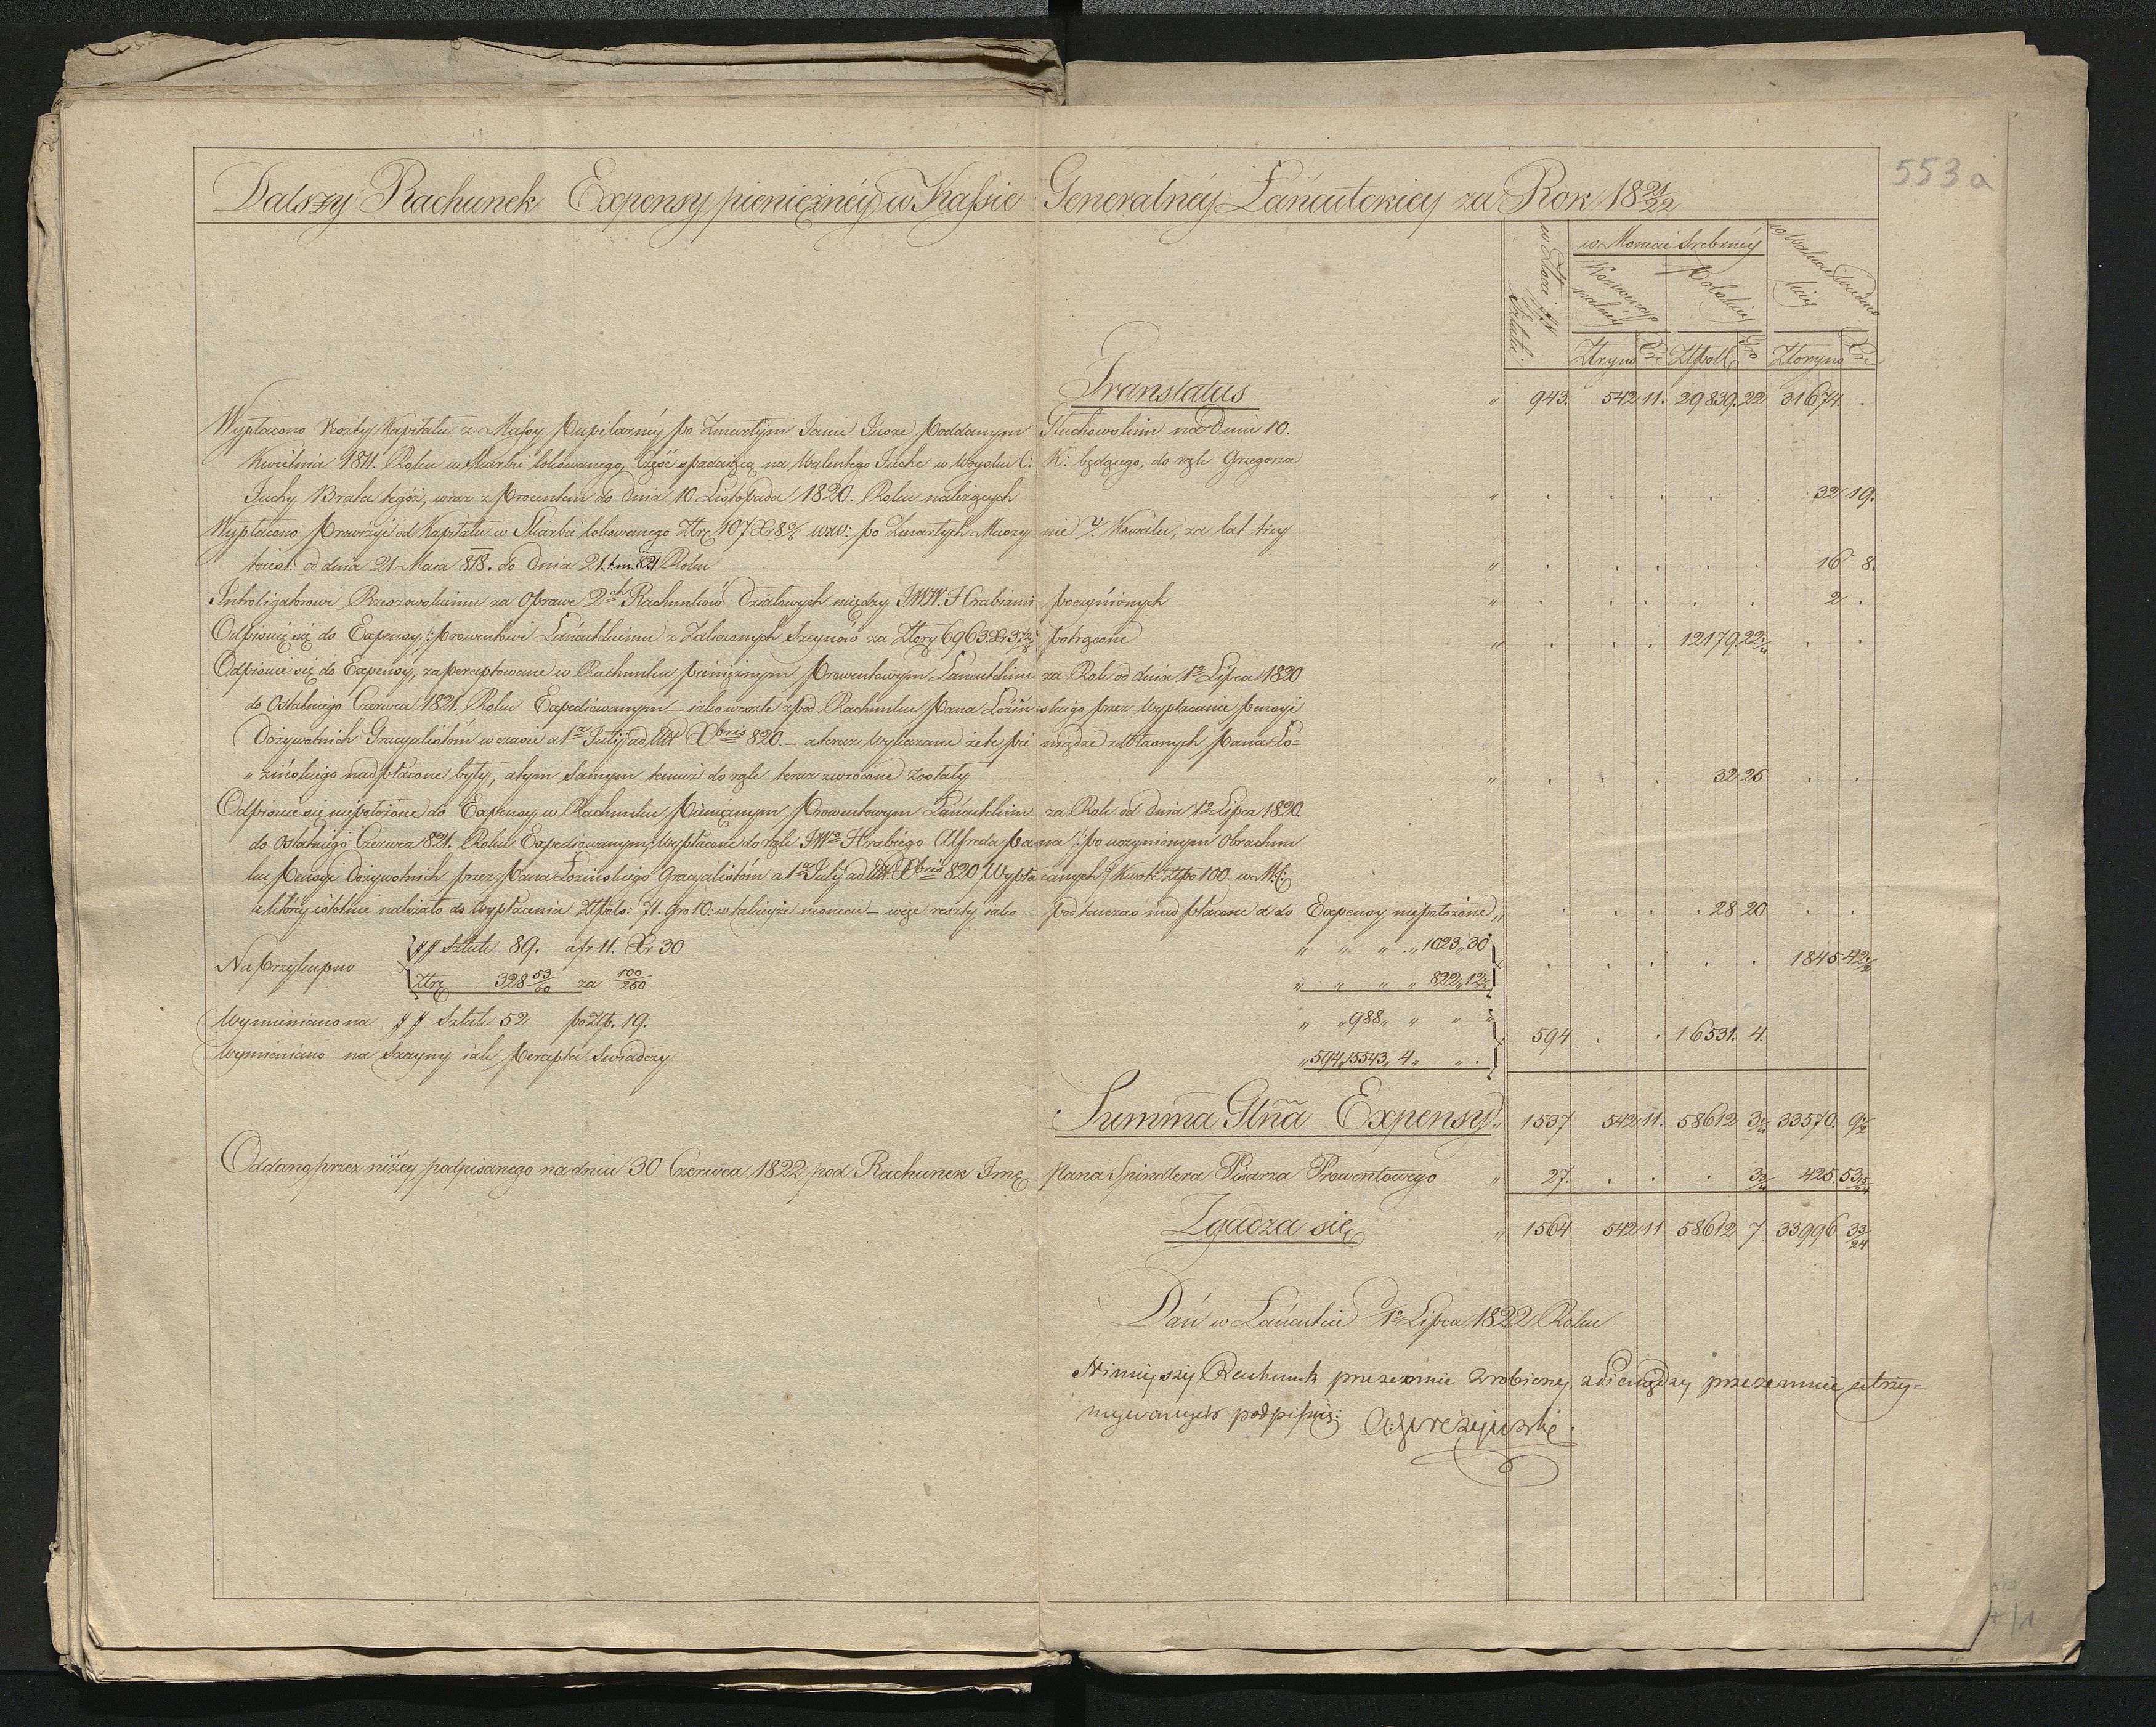 553a
Dalszy Rachunek Expensy pieniężnéy w Kassie Generalnéy Łańcutckiey za Rok 18 21/22
w Złocie ## Sztuki
w Monecie Srebrnéy
w Walucie Wiedeńskiey
Konwencyonalnéy
Polskiey
Ztryno Xr Ztpols Gro Ztoryno Xr
Translatus " 943. 542 11. 29839. 22 31674. .
Wypłacono Reszty Kapitału z Massy Pupilarnéy po Zmarłym Janie Jusze Poddanym Głuchowskim na Dniu 10.
Kwietnia 1811. Roku w Skarbie lokowanego, Część spadaiącą na Walentego Juche w Woysku C: K: będącego, do rąk Grzegorza
Juchy Brata tegóż, wraz z Procentem do Dnia 10 Listopada 1820. Roku należących " . . . . . 32 19.
Wypłacono Prowizyi od Kapitału w Skarbie lokowanego Ztr 107 Xr 8 3/6 wzw: po Zmarłych Muszynie y Kowalu, za lat trzy
toiest: od dnia 21 Maia 818. do Dnia 21. t.m. 821 Roku " . . . . . 16 8.
Introligatorowi Rzeszowskiemu za Oprawe 2ch Rachunków Działowych między JWW. Hrabiami poczynionych " . . . . . 2 .
Odpisuie się do Expensy, Prowentowi Łańcutskiemu z Zaliczonych Szeynów za Ztory 6963 Xr 37 2/8 potrącone " . . . 12179. 22 . .
Odpisuie się do Expensy, zaperceptowane w Rachunku pieniężnym Prowentowym Łańcutckim za Rok od dnia 1o Lipca 1820
do Ostatniego Czerwca 1821. Roku Expediowanym — iako weszłe z pod Rachunku Pana Łozińskiego przez Wypłacanie Pensyi
Dożywotnich Gracyalistom w czasie a 1a Julij ad Ult Xbris 820. — a teraz wykazane że te pieniądze z Własnych Pana Ło=
"zińskiego nadpłacone były, a tym samym temuż do rąk teraz zwrócone zostały " . . . 32 25 . .
Odpisuie się niepołożone do Expensy w Rachunku Pieniężnym Prowentowym Łańcutckim za Rok od Dnia 1o Lipca 1820.
do Ostatniego Czerwca 821. Roku Expediowanym: Wypłacone do rąk JWo Hrabiego Alfreda Pana /: po uczynionym Obrachun
ku Pensyi Dożywotnich przez Pana Łozińskiego Gracyalistóm a 1a Julij ad Ult Xbris 820 Wypłacanych :/ Kwote Ztp 100. w M. S:
a któréy istotnie należało do wypłacenia Ztpols: 71. Gro 10. w takieyże monecie — więc reszty iako podtenczas nadpłacone a do Expensy niepołożone " . . . 28 20 . .
Na Przykupno ## Sztuk 89. a fr 11. Xr 30 " " " " 1023 " 30
Ztr 328 53/60 za 100/250 " " " " 822 " 12 . . . . . 1845 42
Wymieniano na ## Sztuk 52 po Ztp. 19. " " 988 " " " "
Wymieniano na Szayny iak Percepta Swiadczy " 594 " 15543 " 4 " " . 594 . . 16531. 4.
Summa Glna Expensy " 1537 542 11. 58612 3 33570. 9
Oddano przez niżéy podpisanego na dniu 30 Czerwca 1822 pod Rachunek Jmę Pana Spindlera Pisarza Prowentowego " 27. . . . 3 425. 53
Zgadza się " 1564 542 11 58612 7 33996 3
Dań w Łańcutcie D 1o Lipca 1822 Roku
Ninieyszy Rachunek przezemnie zrobioney z Pieniędzy przezemnie utrzy=
mywanych podpisuię: